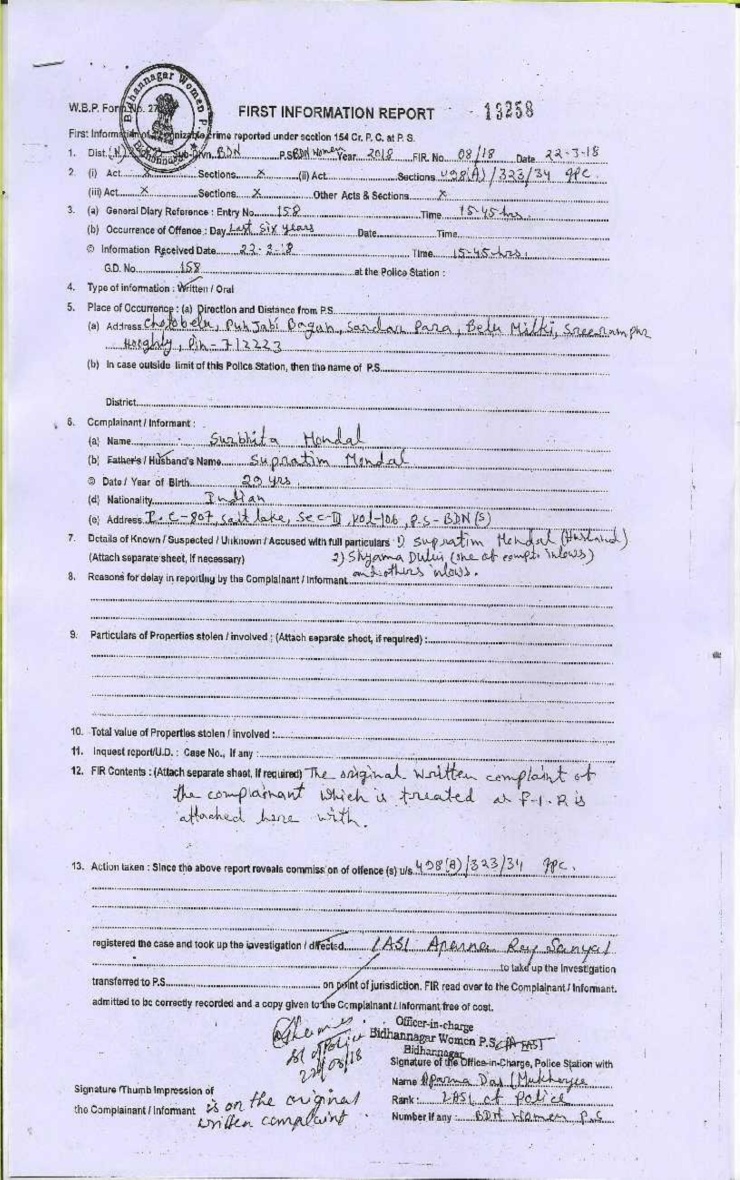 Bidhannagar Women P.S.
Bidhannagar
W.B.P. Form No. 27
FIRST INFORMATION REPORT 13258
First Information of cognizable crime reported under section 154 Cr. P. C. at P. S.
1. Dist. (N) Sub-Divn. BDN P.S. BDN Women Year 2018 FIR. No. 08/18 Date 22-3-18
2. (i) Act Sections X (ii) Act Sections 498(A)/323/34 IPC.
(iii) Act X Sections. X Other Acts & Sections. X
3. (a) General Diary Reference : Entry No. 158 Time 15-45 hrs.
(b) Occurrence of Offence : Day Last Six years Date Time
© Information Received Date 22-3-18 Time 15-45 hrs.
G.D. No. 158 at the Police Station :
4. Type of information : Written / Oral
5. Place of Occurrence : (a) Direction and Distance from P.S.
(a) Address Punjabi Bagan, Sardar Para, Belu Milki, Sreerampur
Hooghly, Pin - 712223
(b) In case outside limit of this Police Station, then the name of P.S.
District
6. Complainant / Informant :
(a) Name Surbhita Mondal
(b) Father's / Husband's Name Supratim Mondal
© Date / Year of Birth 29 yrs
(d) Nationality Indian
(e) Address C-807, Salt lake, Sec-II, Kol-106, P.S - BDN(S)
7. Details of Known / Suspected / Unknown / Accused with full particulars 1) Supratim Mondal (Husband)
(Attach separate sheet, if necessary) 2) Shyama Dului (one of compt. inlows)
and others inlows.
8. Reasons for delay in reporting by the Complainant / Informant
9. Particulars of Properties stolen / involved ; (Attach separate sheet, if required) :
10. Total value of Properties stolen / involved :
11. Inquest report/U.D. : Case No., if any :
12. FIR Contents : (Attach separate sheet, if required) The original written complaint of
the complainant which is treated as F.I.R is
attached here with.
13. Action taken : Since the above report reveals commission of offence (s) u/s 498(A)/323/34 IPC.
registered the case and took up the investigation / directed LASI Aparna Ray Sanyal
to take up the Investigation
transferred to P.S. on point of jurisdiction. FIR read over to the Complainant / Informant.
admitted to be correctly recorded and a copy given to the Complainant / Informant free of cost.
Officer-in-charge
Bidhannagar Women P.S.
Bidhannagar
SI of Police
22/03/18
Signature of the Office-in-Charge, Police Station with
Name Aparna Das (Mukherjee
Rank : LASI of Police
Number if any : BDN Women P.S
Signature /Thumb Impression of
the Complainant / Informant is on the original
written complaint.